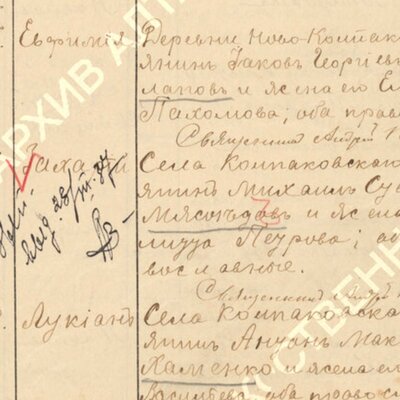 Евфимія
Деревни Ново-Компак
янинъ Іаковъ Георгіев
лаповъ и жена его Ел
Пахомова; оба прав
Священникъ Андрей
Захарій
Села Компаковскаго
янинъ Михаилъ Су
Мясоѣдовъ и жена
лицца Петрова; об
вославные.
28/III.87
Священникъ Андрей
Лукіанъ
Села Компаковска
янинъ Мак
Хаменко и жена е
Васильева; оба правосл
АРХИВ